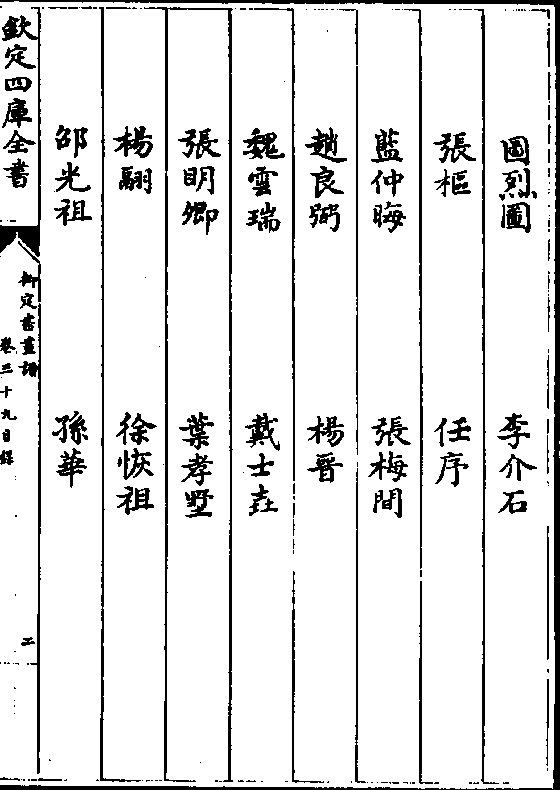 圖烈圖　李介石
張樞　任序
藍仲晦　張梅間
趙良弼　楊晉
魏雲瑞　戴士垚
張明卿　葉孝墅
楊翮　徐恢祖
邵光祖　孫華
欽定四庫全書
御定書畫譜
卷三十九目錄
二